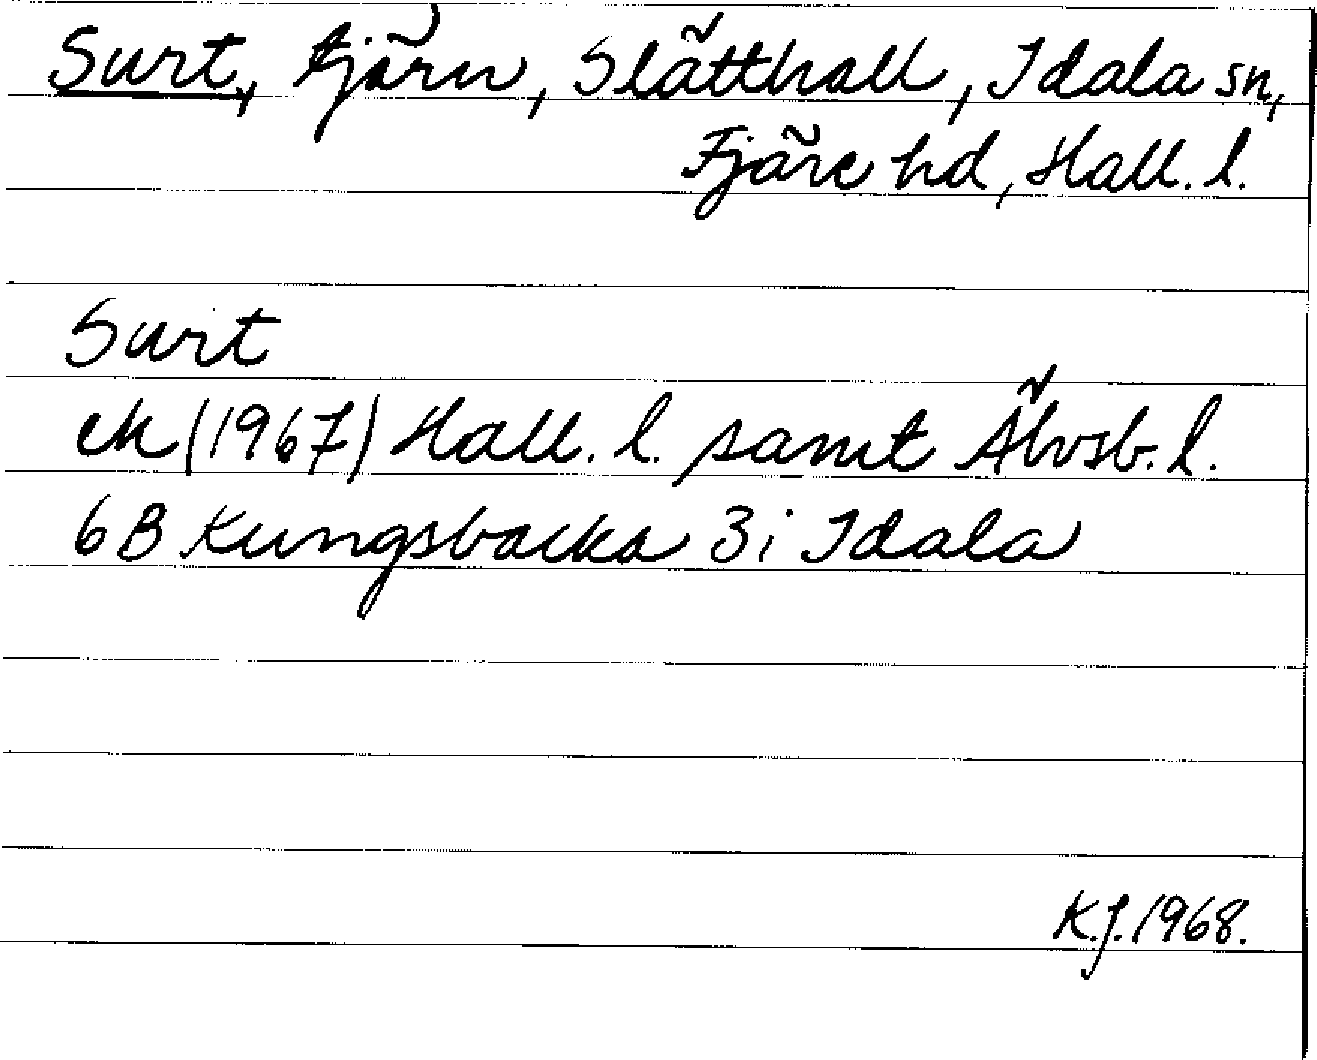 Surt, tjärn, Slätthall, Idala sn,
Fjäre hd, Hall. l.
Surt
ek (1967) Hall. l. samt Älvsb. l.
6B Kungsbacka 3i Idala
K.J. 1968.